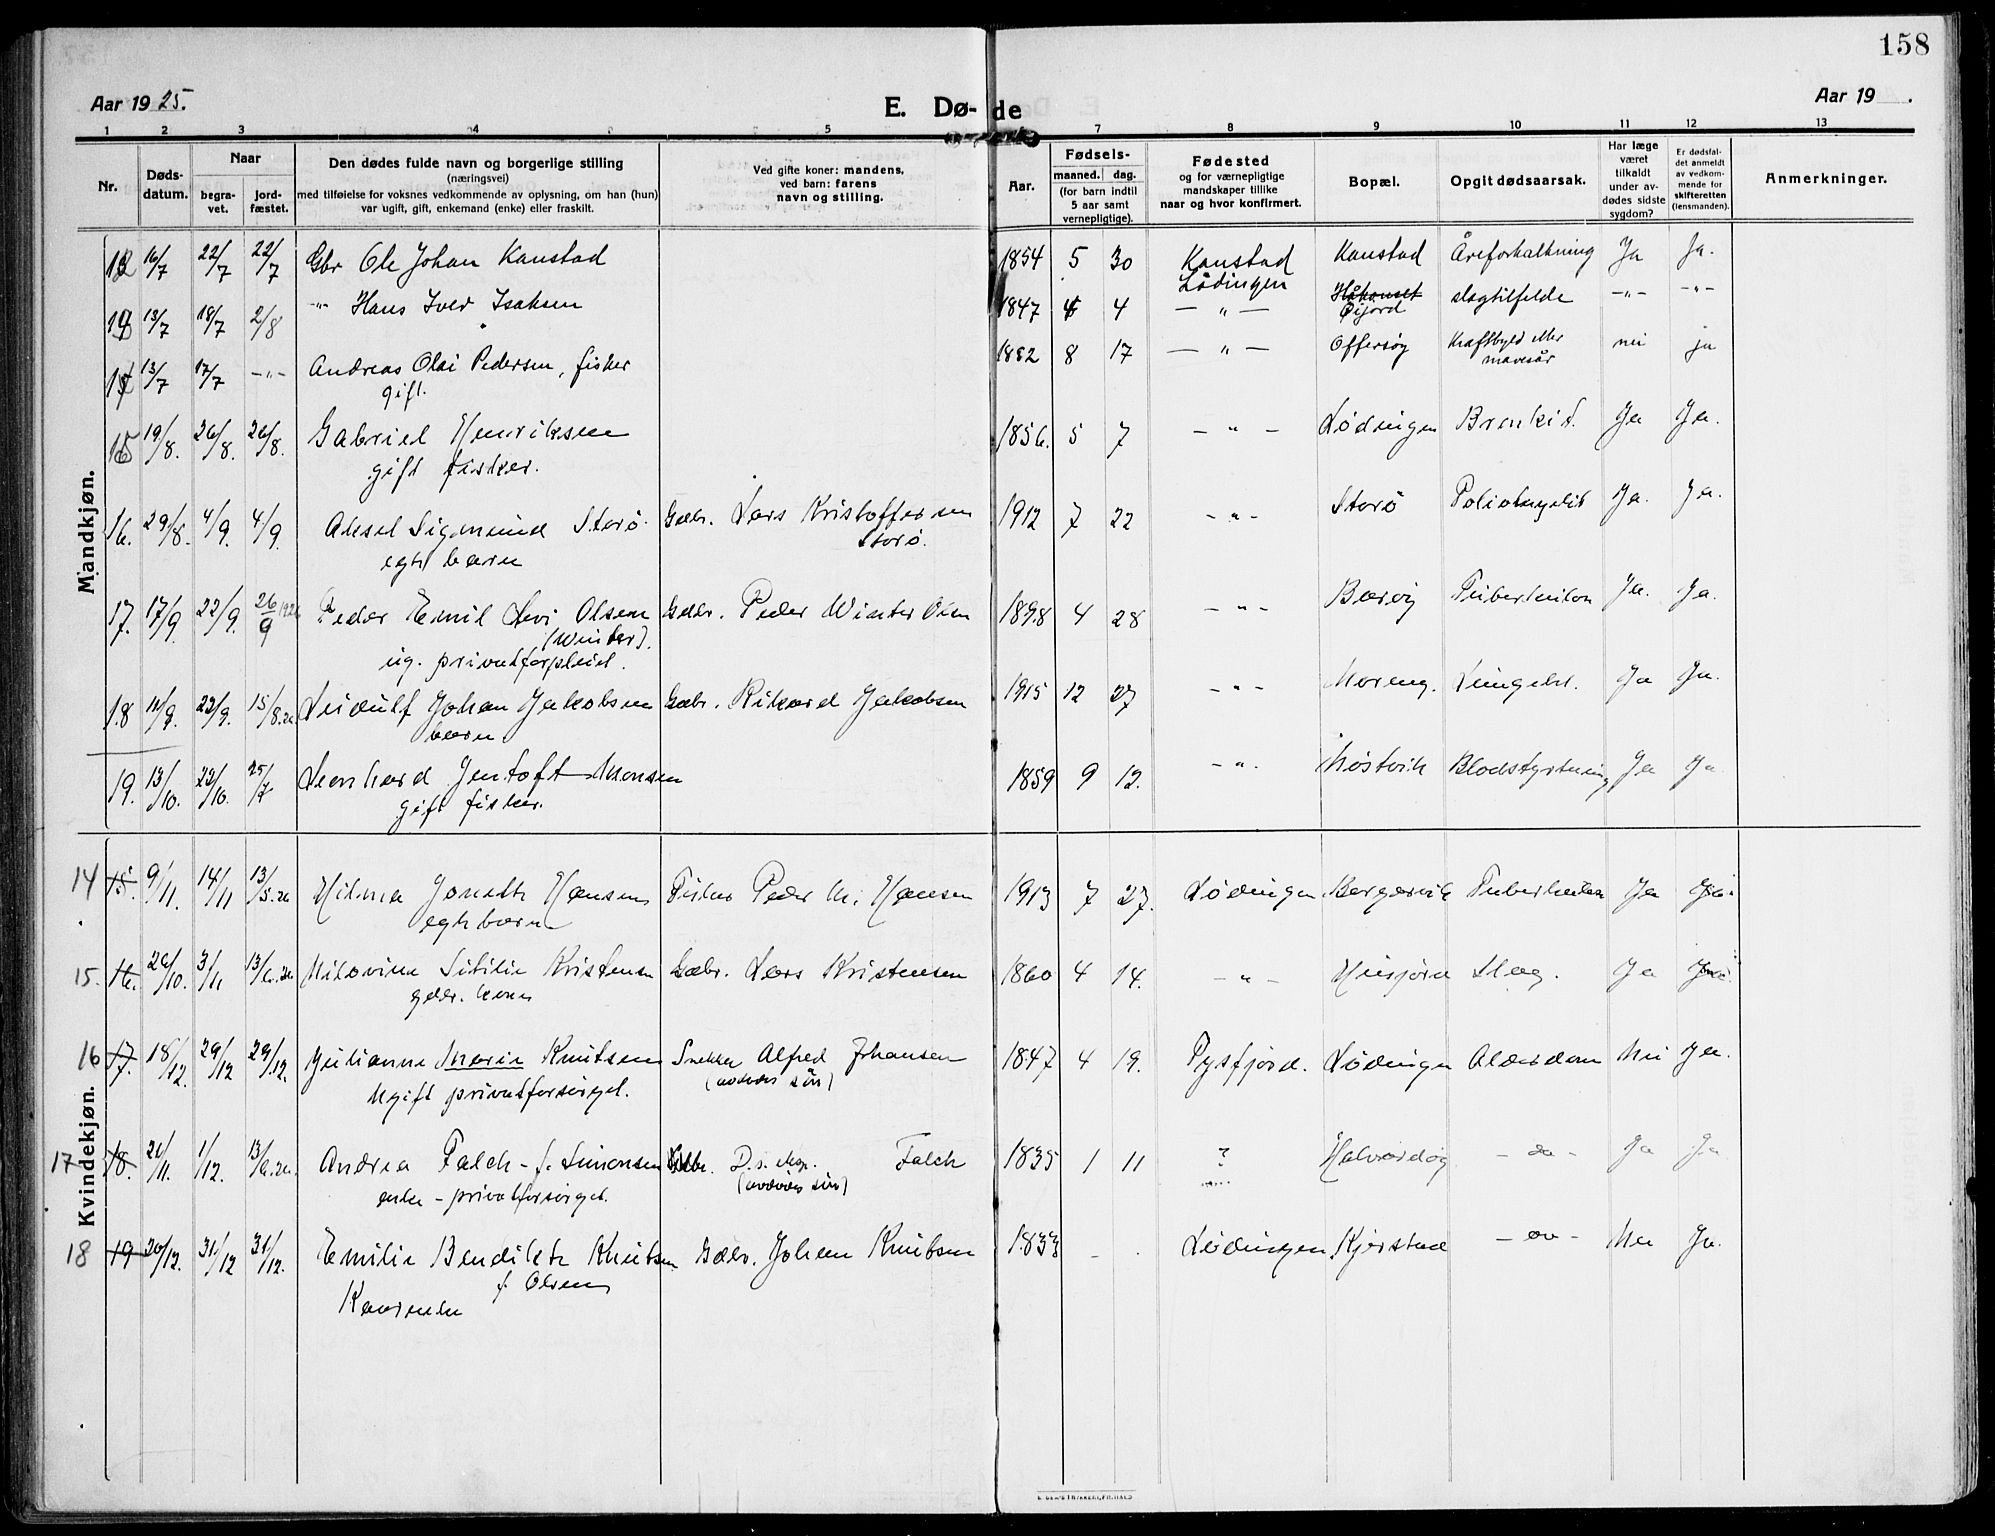 158
Aar 1925.
E. Dø-de
Aar 19 .
1 2 3 4 5 7 8 9 10 11 12 13
Nr.
Døds-
datum.
Naar
begra-
vet.
jord-
fæstet.
Den dødes fulde navn og borgerlige stilling
(næringsvei)
med tilføielse for voksnes vedkommende av oplysning, om han (hun)
var ugift, gift, enkemand (enke) eller fraskilt.
Ved gifte koner: mandens,
ved barn: farens
navn og stilling.
Aar.
Fødsels-
maaned. dag.
(for barn indtil
5 aar samt
vernepligtige).
Fødested
og for værnepligtige
mandskaper tillike
naar og hvor konfirmert.
Bopæl.
Opgit dødsaarsak.
Har læge
været
tilkaldt
under av-
dødes sidste
sygdom?
Er dødsfal-
det anmeldt
av vedkom-
mende for
skifteretten
(lensmanden).
Anmerkninger.
Mandkjøn.
16/7 22/7 22/7 Gbr Ole Johan Kanstad 1854 5 30 Kanstad Kanstad Åreforkalkning Ja Ja.
Lødingen
13/7 18/7 2/8 -"- Hans Iver Isaksen 1847 4 — " — Øijord slagtilfelde -"- -"-
13/7 17/7 -"- Andreas Olai Pedersen, fisker 1882 8 17 — " — Offersøy Kræftbyld eller nei ja
gift. mavesår
15 19/8. 26/8. 26/8. Gabriel Henriksen 1856. 5 7 - " - Lødingen Bronkit. Ja Ja.
gift fisker.
16. 29/8. 4/9. 4/9. Aksel Sigmund Storø. Gdbr. Lars Kristoffersen 1912 7 22 - " - Storø Ja. Ja.
Storø.
egte barn
17. 17/9. 22/9. 26/9 Peder Emil Levi Olsen Gdbr. Peder Winter Olsen 1898 4 28 - " - Ja. Ja.
(Winter).
ug. privatforpleiet.
18 11/9. 22/9. 15/8.26 Leidulf Johan Jakobsen Gdbr. Rikard Jakobsen 1915 12 27 - " - Ja Ja.
barn
19. 13/10. 22/10. 25/7 Leonhard Jentoft Monsen 1859 9 12. - " - Blodstyrtning Ja Ja.
gift fisker.
Kvindekjøn.
14 15. 9/11. 14/11 13/5.26 Hilma Jonette Hansen Fisker Peder M. Hansen 1913 7 27. Lødingen Tuberkulose Ja Ja.
egte barn
15. 16. 26/10. 3/11. 13/6.26 Kristensen Gdbr. Lars Kristensen 1860 4 14. - " - Slag. Ja Ja.
gdbr. kone
16 17. 18/12. 29/12 29/12. Julianna Marie Knutsen Snekker Alfred Johansen 1847 4 19. Tysfjord. Lødingen Alderdom Nei Ja.
(avdødes søn)
Ugift privatforsørget.
17 18. 21/11. 1/12. 13/6.26. Andrea Falch - f. Simonsen Gdbr. Falch 1835 1 11 ? - do - Ja Ja
(avdødes søn)
enke - privatforsørget.
18 19 20/12. 31/12 31/12. Emilie Bendikte Knutsen Gdbr. Johan Knutsen 1833 - . Lødingen Kjerstad - do - Nei Ja.
f. Olsen